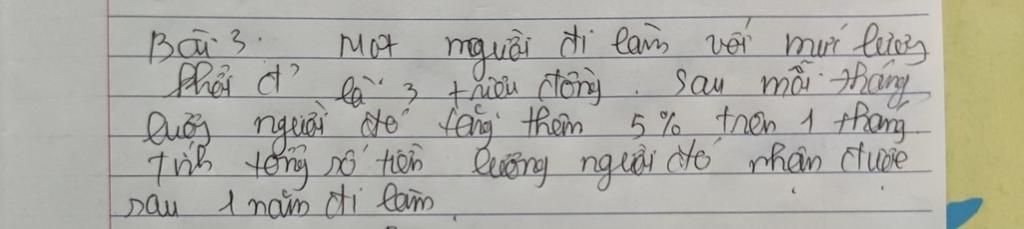 Bài 3. Một người đi làm với mức lương
khởi đ' là 3 triệu đồng. sau mỗi tháng
lương người đó tăng thêm 5% trên 1 tháng.
Tính tổng số tiền lương người đó nhận được
sau 1 năm đi làm